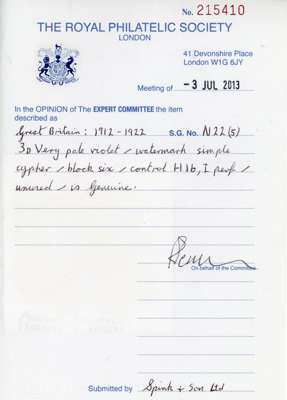 No. 215410
THE ROYAL PHILATELIC SOCIETY
LONDON
41 Devonshire Place
London W1G 6JY
Meeting of -3 JUL 2013
In the OPINION of The EXPERT COMMITTEE the item
described as
Great Britain: 1912-1922 S.G. No. N22(5)
3D Very pale violet / watermark simple
cypher / block six / control H16, I perf /
unused / is genuine.
On behalf of the Committee
Submitted by Spink & Son Ltd